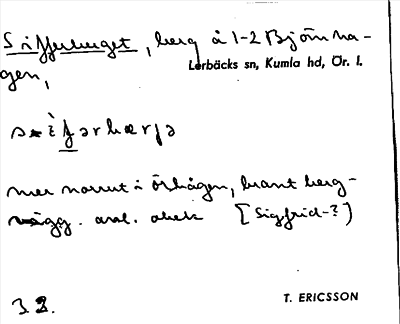 Sifferberget, berg å 1-2 Björnha-
gen,
Lerbäcks sn, Kumla hd, Ör. l.
mer norrut i Örhågen, brant berg-
vägg. anl. obek [Sigfrid-?]
32.
T. ERICSSON